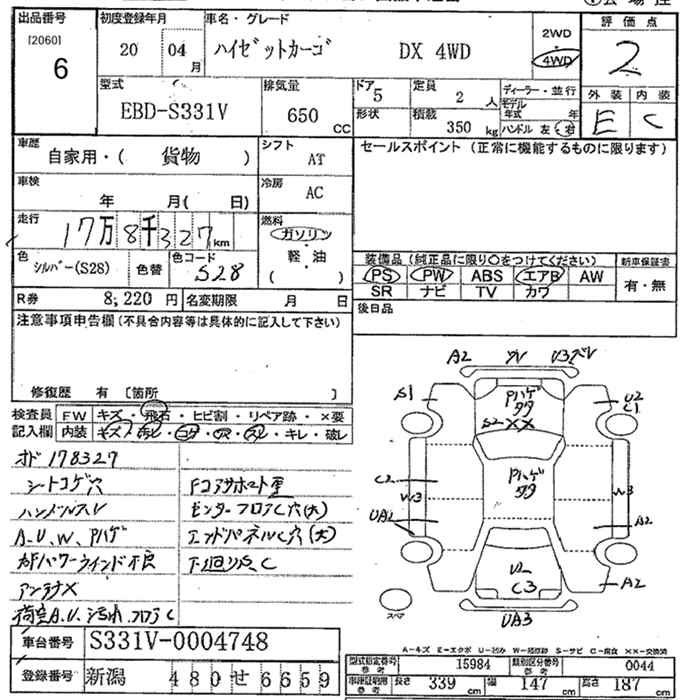 出品番号 初度登録年月 車名・グレード 評価点
[2060] 6 20 04月 ハイゼットカーゴ DX 4WD 2WD 4WD 2
型式 排気量 ドア 定員 ディーラー・並行 外装 内装
EBD-S331V 650 CC 5 2人 モデル年式 年 E C
形状 積載 350 kg ハンドル 左・右
車歴 自家用・( 貨物 ) シフト AT セールスポイント (正常に機能するものに限ります)
車検 年 月( 日) 冷房 AC
走行 17万8千327km 燃料 ガソリン 軽・油 ( )
色 シルバー(S28) 色替 色コード S28
装備品 (純正品に限り○をつけてください) 新車保証書
PS PW ABS エアB AW 有・無
SR ナビ TV カワ
R券 8,220円 名変期限 月 日 後日品
注意事項申告欄 (不具合内容等は具体的に記入して下さい)
修復歴 有 〔箇所 〕
検査員 FW キズ・飛石・ヒビ割・リペア跡・×要
記入欄 内装 キズ・汚レ・コゲ・穴・スレ・キレ・破レ
オド 178327
シートコゲ穴
ハンドルスレ
A.U.W.Pハゲ
アンテナX
Fコアサポート
センターフロアC穴(大)
エンドパネルC穴(大)
A2 U3
S1 Pハゲ U2
C1
S2 XX
Pハゲ
C2 W3 W3
UA2 A2
A2
C3
スペア UA3
A-キズ E-エクボ U-凹み W-補修跡 S-サビ C-腐食 ××-交換済
車台番号 S331V-0004748
登録番号 新潟 480 せ 6659
型式指定番号 参考 15984 類別区分番号 参考 0044
車検証期間 参考 長さ 339 cm 幅 147 cm 高さ 187 cm